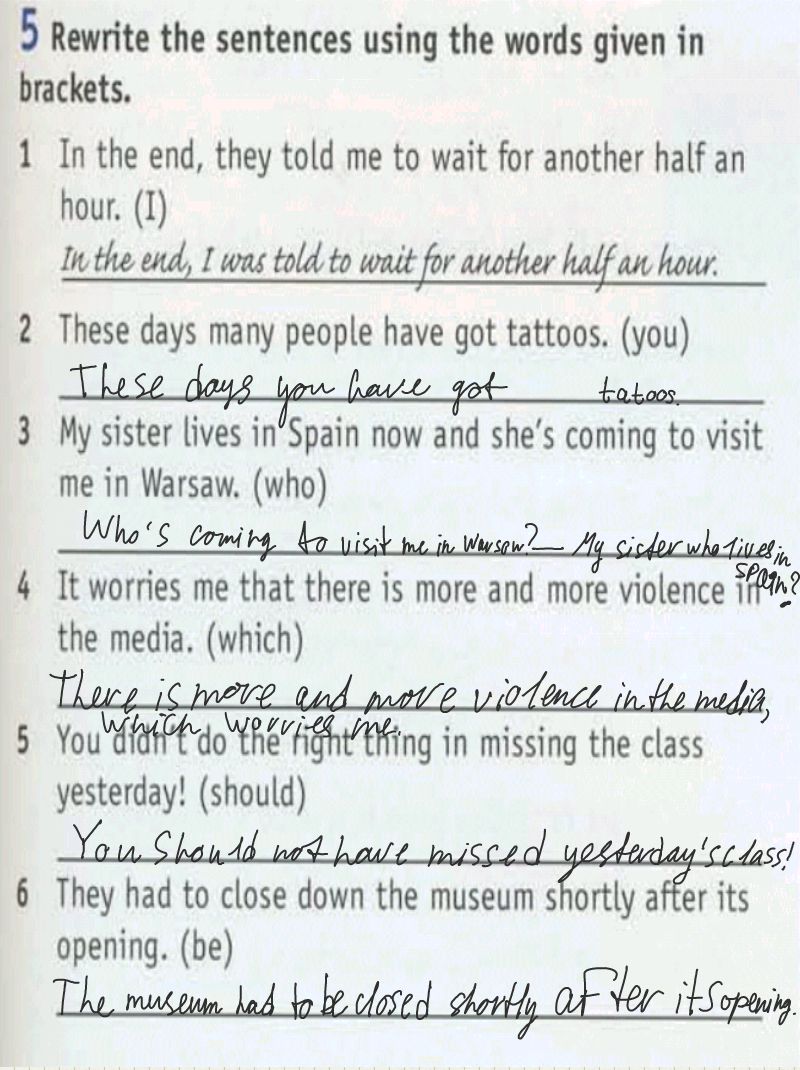 5 Rewrite the sentences using the words given in
brackets.
1 In the end, they told me to wait for another half an
hour. (I)
In the end, I was told to wait for another half an hour.
2 These days many people have got tattoos. (you)
These days you have got tatoos.
3 My sister lives in Spain now and she's coming to visit
me in Warsaw. (who)
Who's coming to visit me in Warsaw? – My sister who lives in
Spain?
4 It worries me that there is more and more violence in
the media. (which)
There is more and more violence in the media,
which worries me.
5 You didn't do the right thing in missing the class
yesterday! (should)
You should not have missed yesterday's class!
6 They had to close down the museum shortly after its
opening. (be)
The museum had to be closed shortly after its opening.